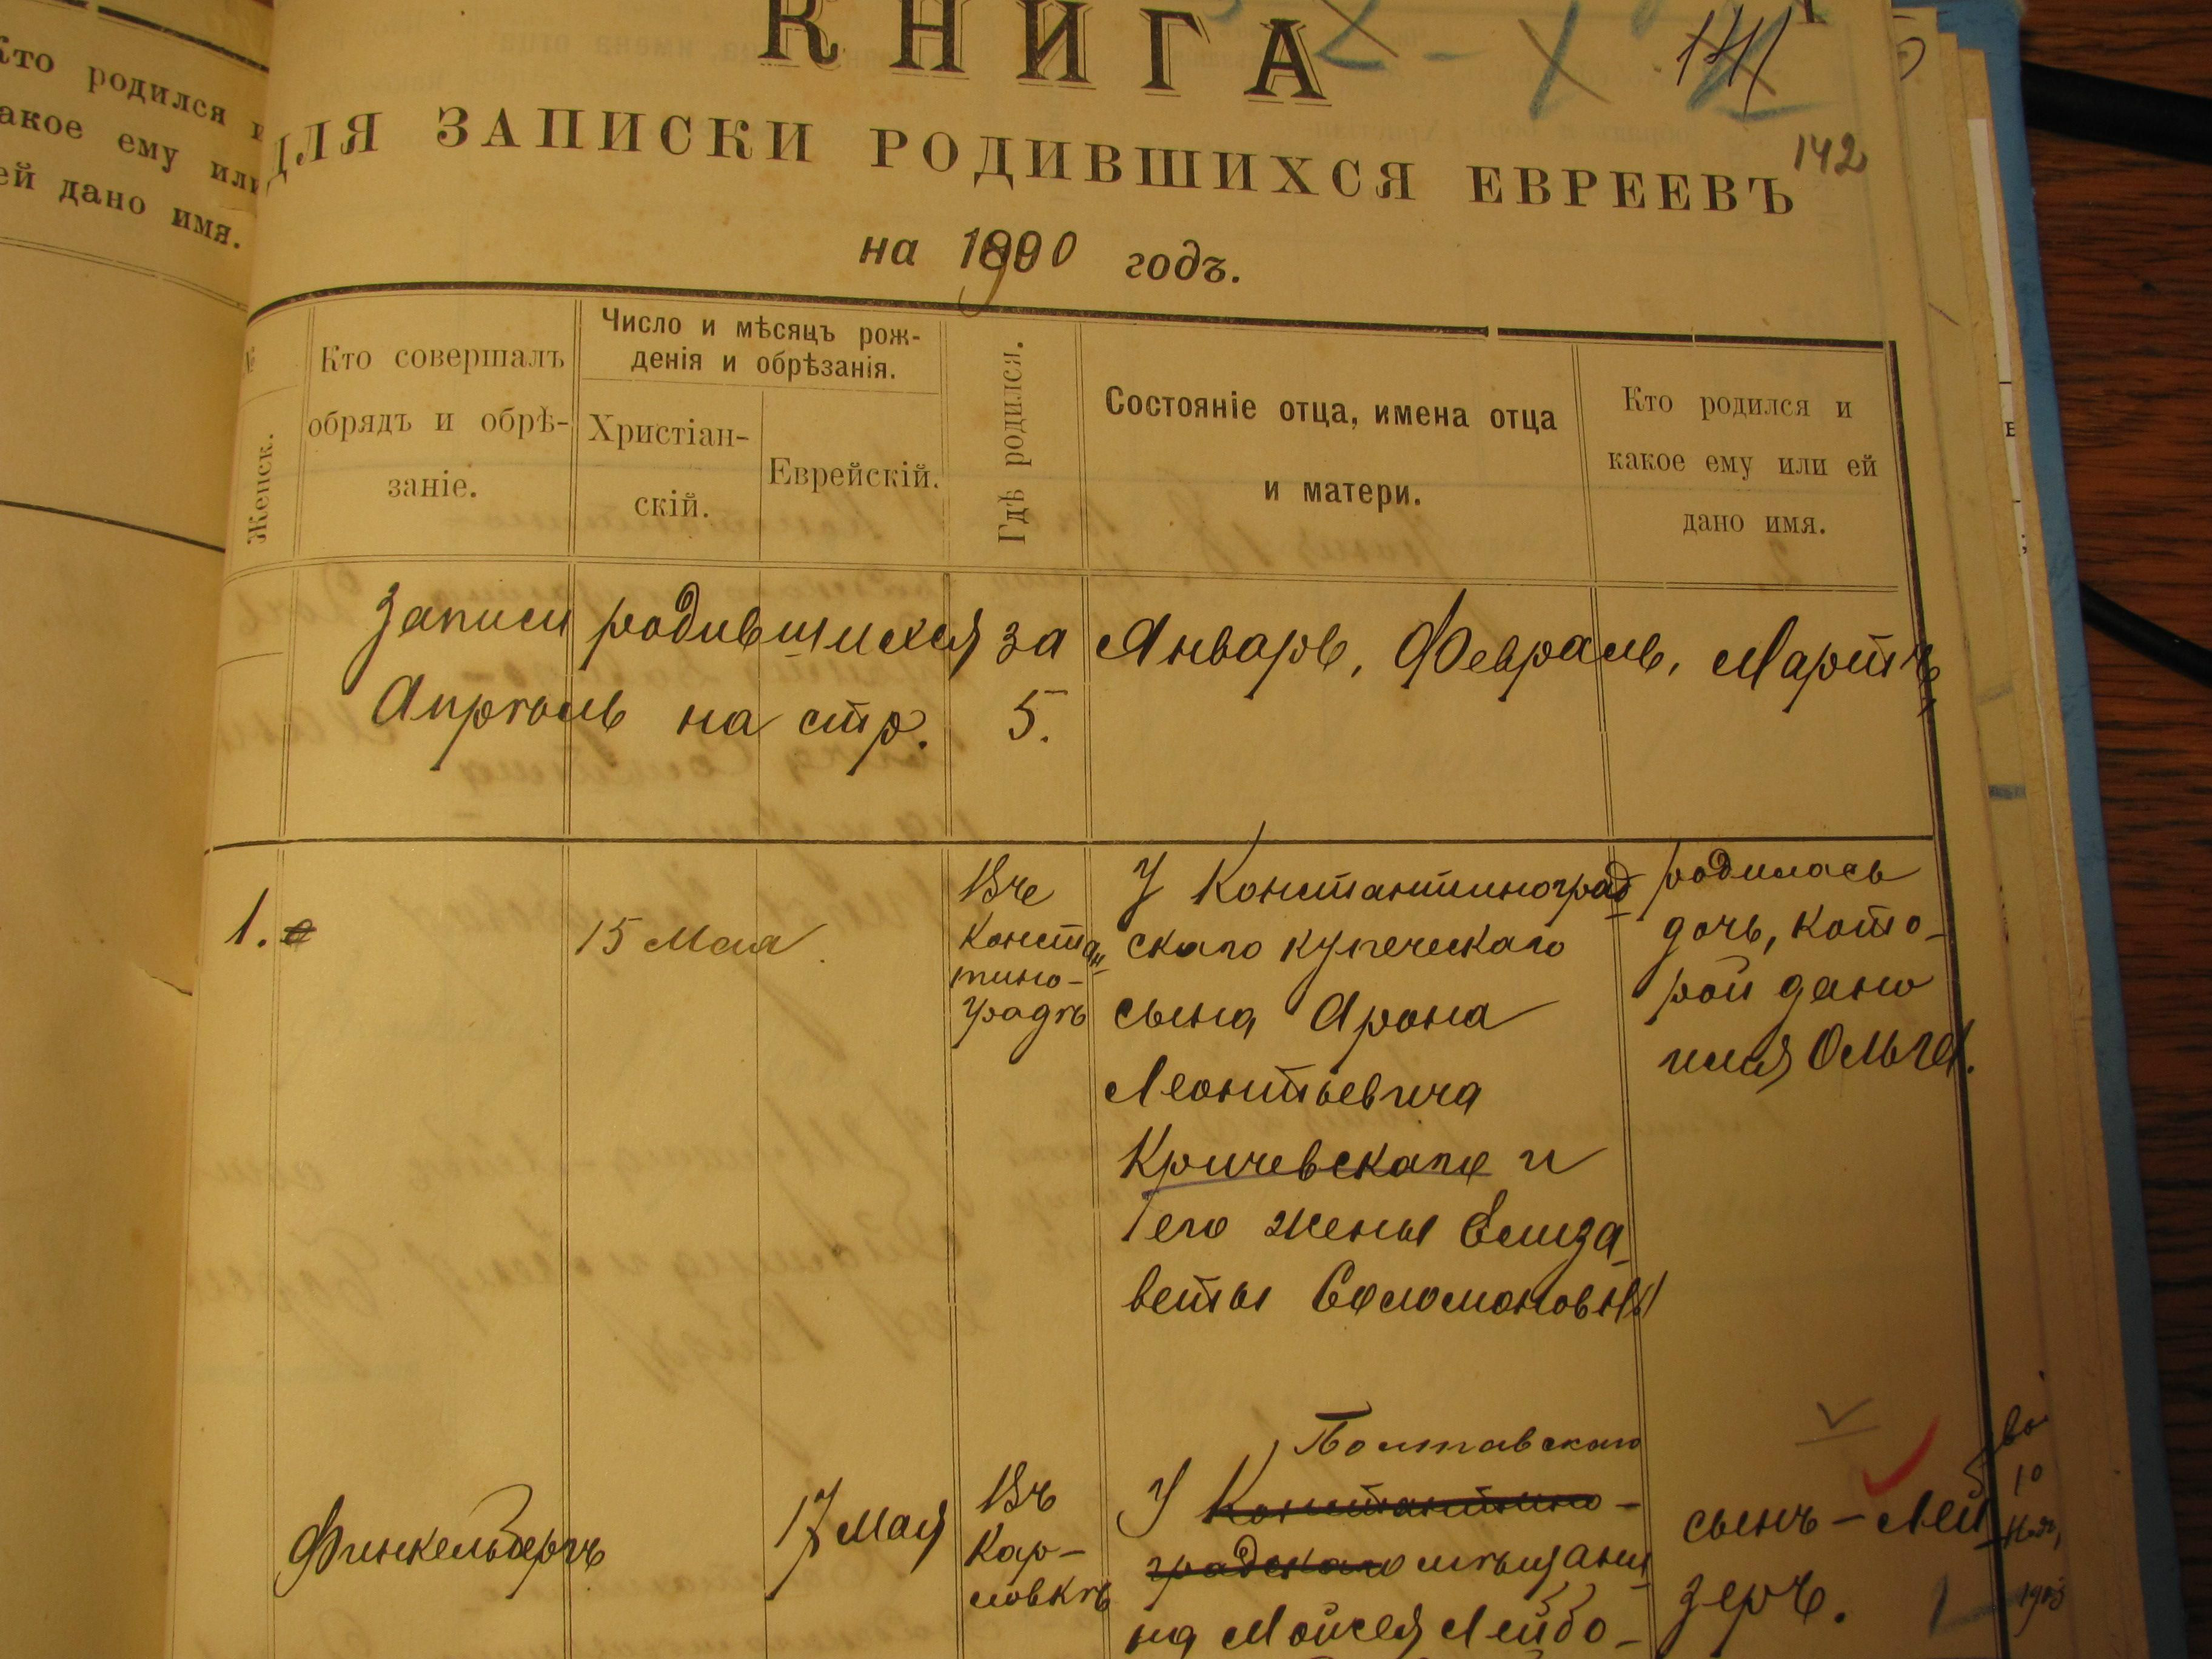 Кто родился и
акое ему или
ей дано имя.
КНИГА
141
142
ДЛЯ ЗАПИСКИ РОДИВШИХСЯ ЕВРЕЕВЪ
на 1890 годъ.
№
Женск.
Кто совершалъ
обрядъ и обрѣ-
заніе.
Число и мѣсяцъ рож-
денія и обрѣзанія.
Христіан-
скій.
Еврейскій.
Гдѣ родился.
Состояніе отца, имена отца
и матери.
Кто родился и
какое ему или ей
дано имя.
Записи родившихся за Январь, Февраль, Мартъ,
Апрѣль на стр. 5.
1.
15 Мая.
Въ
Констан
тино-
градѣ
У Константиноград
скаго купеческаго
сына Арона
Леонтьевича
Кричевскаго и
его жены Елиза
веты Соломоновны
родилась
дочь, кото-
рой дано
имя Ольга.
Финкельбергъ
17 Мая
Въ
Кар-
ловкѣ
Полтавскаго
У Константино-
градскаго мѣщани
на Мойсея Лейбо-
сынъ - Лей
зеръ.